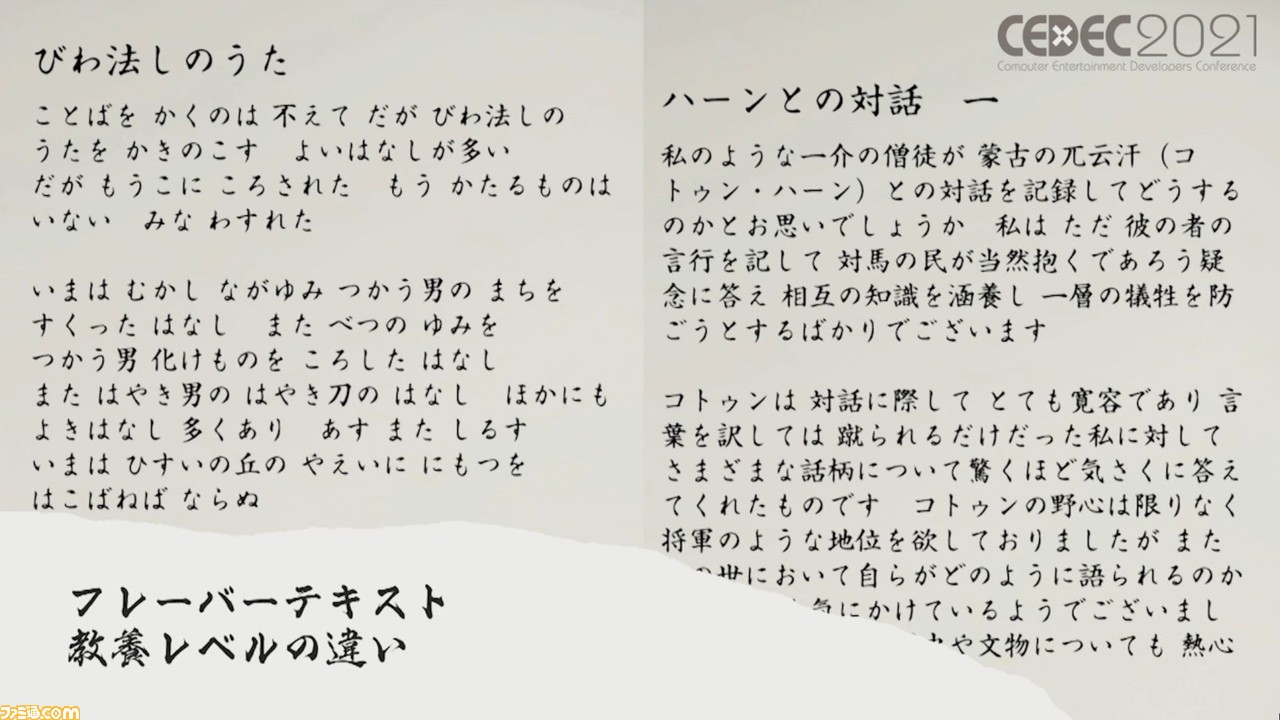 びわ法しのうた
ことばを かくのは 不えて だが びわ法しの
うたを かきのこす　よいはなしが多い
だが もうこに ころされた　もう かたるものは
いない　みな わすれた
いまは むかし ながゆみ つかう男の まちを
すくった はなし　また べつの ゆみを
つかう男 化けものを ころした はなし
また はやき男の はやき刀の はなし　ほかにも
よきはなし 多くあり　あす また しるす
いまは ひすいの丘の やえいに にもつを
はこばねば ならぬ
フレーバーテキスト
教養レベルの違い
ファミ通.com
CEDEC2021
Computer Entertainment Developers Conference
ハーンとの対話　一
私のような一介の僧徒が 蒙古の兀云汗（コ
トゥン・ハーン）との対話を記録してどうする
のかとお思いでしょうか　私は ただ 彼の者の
言行を記して 対馬の民が当然抱くであろう疑
念に答え 相互の知識を涵養し 一層の犠牲を防
ごうとするばかりでございます
コトゥンは 対話に際して とても寛容であり 言
葉を訳しては 蹴られるだけだった私に対して
さまざまな話柄について驚くほど気さくに答え
てくれたものです　コトゥンの野心は限りなく
将軍のような地位を欲しておりましたが また
世において自らがどのように語られるのか
気にかけているようでございまし
や文物についても 熱心